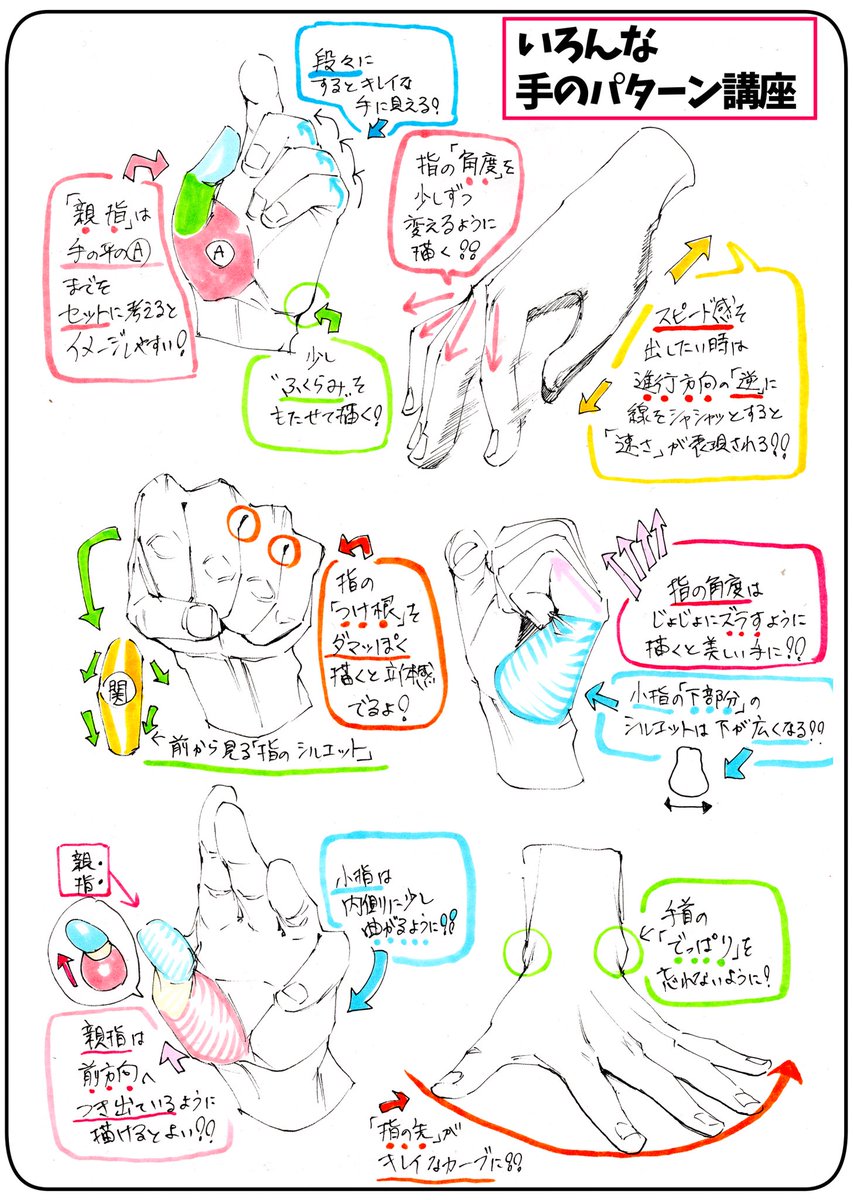 いろんな
手のパターン講座
段々に
するとキレイな
手に見える?
「親指」は
手の平のⒶ
までを
セットに考えると
イメージしやすい!
A
少し
"ふくらみ"を
もたせて描く!
指の「角度」を
少しずつ
変えるように
描く!!
スピード感を
出したい時は
進行方向の「逆」に
線をシャシャッとすると
「速さ」が表現される!!
指の
「つけ根」を
ダマッぽく
描くと立体感
でるよ!
関
←前から見る「指のシルエット」
指の角度は
じょじょにズラすように
描くと美しい手に!!
小指の「下部分」の
シルエットは下が広くなる!!
親・
指・
小指は
内側に少し
曲がるように!!
親指は
前方向へ
つき出ているように
描けるとよい!!
手首の
「でっぱり」を
忘れないように!
「指の先」が
キレイなカーブに!!